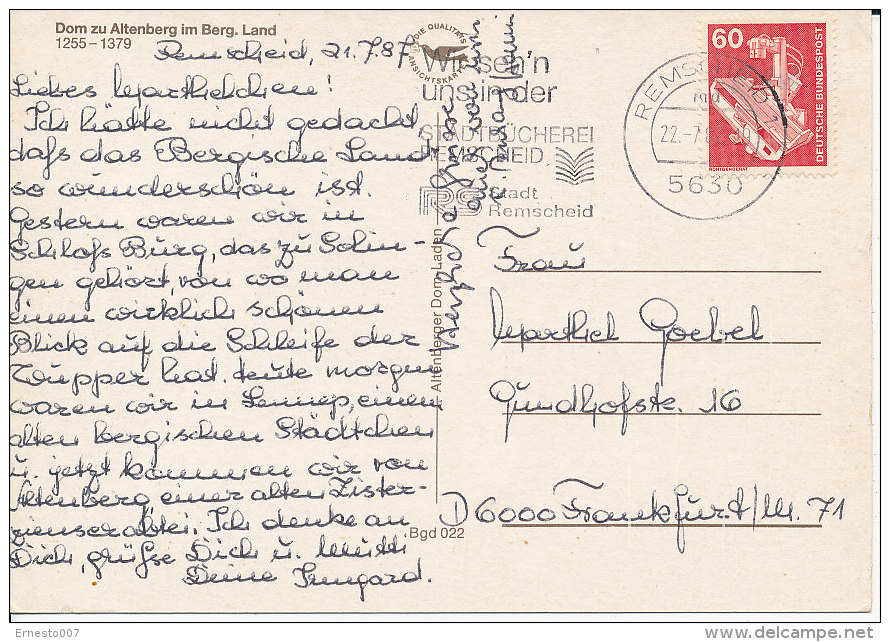 Dom zu Altenberg im Berg. Land
1255–1379
Remscheid, 21.7.87
Liebes Marthelchen!
Ich hätte nicht gedacht
daß das Bergische Land
so wunderschön ist.
Gestern waren wir in
Schloß Burg, das zu Solin-
gen gehört, von wo man
einen wirklich schönen
Blick auf die Schleife der
Wupper hat. Heute morgen
waren wir in Lennep, einem
alten bergischen Städtchen
u. jetzt kommen wir von
Altenberg einer alten Zister-
zienserabtei. Ich denke an
Dich, grüße Dich u. Mutti
Deine Irmgard.
Herzliche Grüsse
DIE QUALITÄTS
ANSICHTSKARTE
Wissen'n
uns in der
STADTBÜCHEREI
REMSCHEID
RS Stadt
Remscheid
REMSCHEID 1
22.-7.8
5630
60
DEUTSCHE BUNDESPOST
RÖNTGENGERÄT
Altenberger Dom-Laden
Bgd 022
Frau
Marthel Goebel
Gundhofstr. 16
D 6000 Frankfurt/M. 71
Ernesto007
delcampe.net